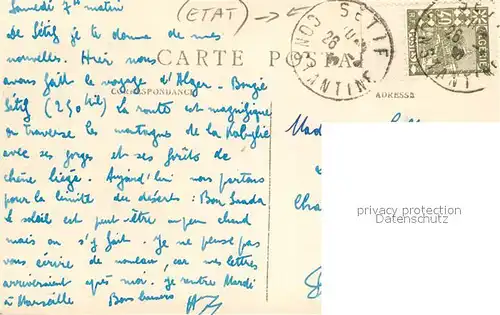 Samedi 7h matin
(ETAT)
De Sétif je te donne de mes
nouvelles. Hier nous
CARTE POSTALE
avons fait le voyage d'Alger - Bougie
CORRESPONDANCE
ADRESSE
Sétif (250 kil) la route est magnifique
on traverse les montagnes de la Kabylie
avec ses gorges et ses forêts de
chêne liège. Aujourd'hui nous partons
pour la limite des déserts : Bou Saada
le soleil est peut-être un peu chaud
mais on s'y fait. Je ne pense pas
vous écrire de nouveau, car mes lettres
arriveraient après moi. Je rentre Mardi
à Marseille Bons baisers
SETIF
CONSTANTINE
26
ALGERIE
POSTES
Mad
Cha
privacy protection
Datenschutz